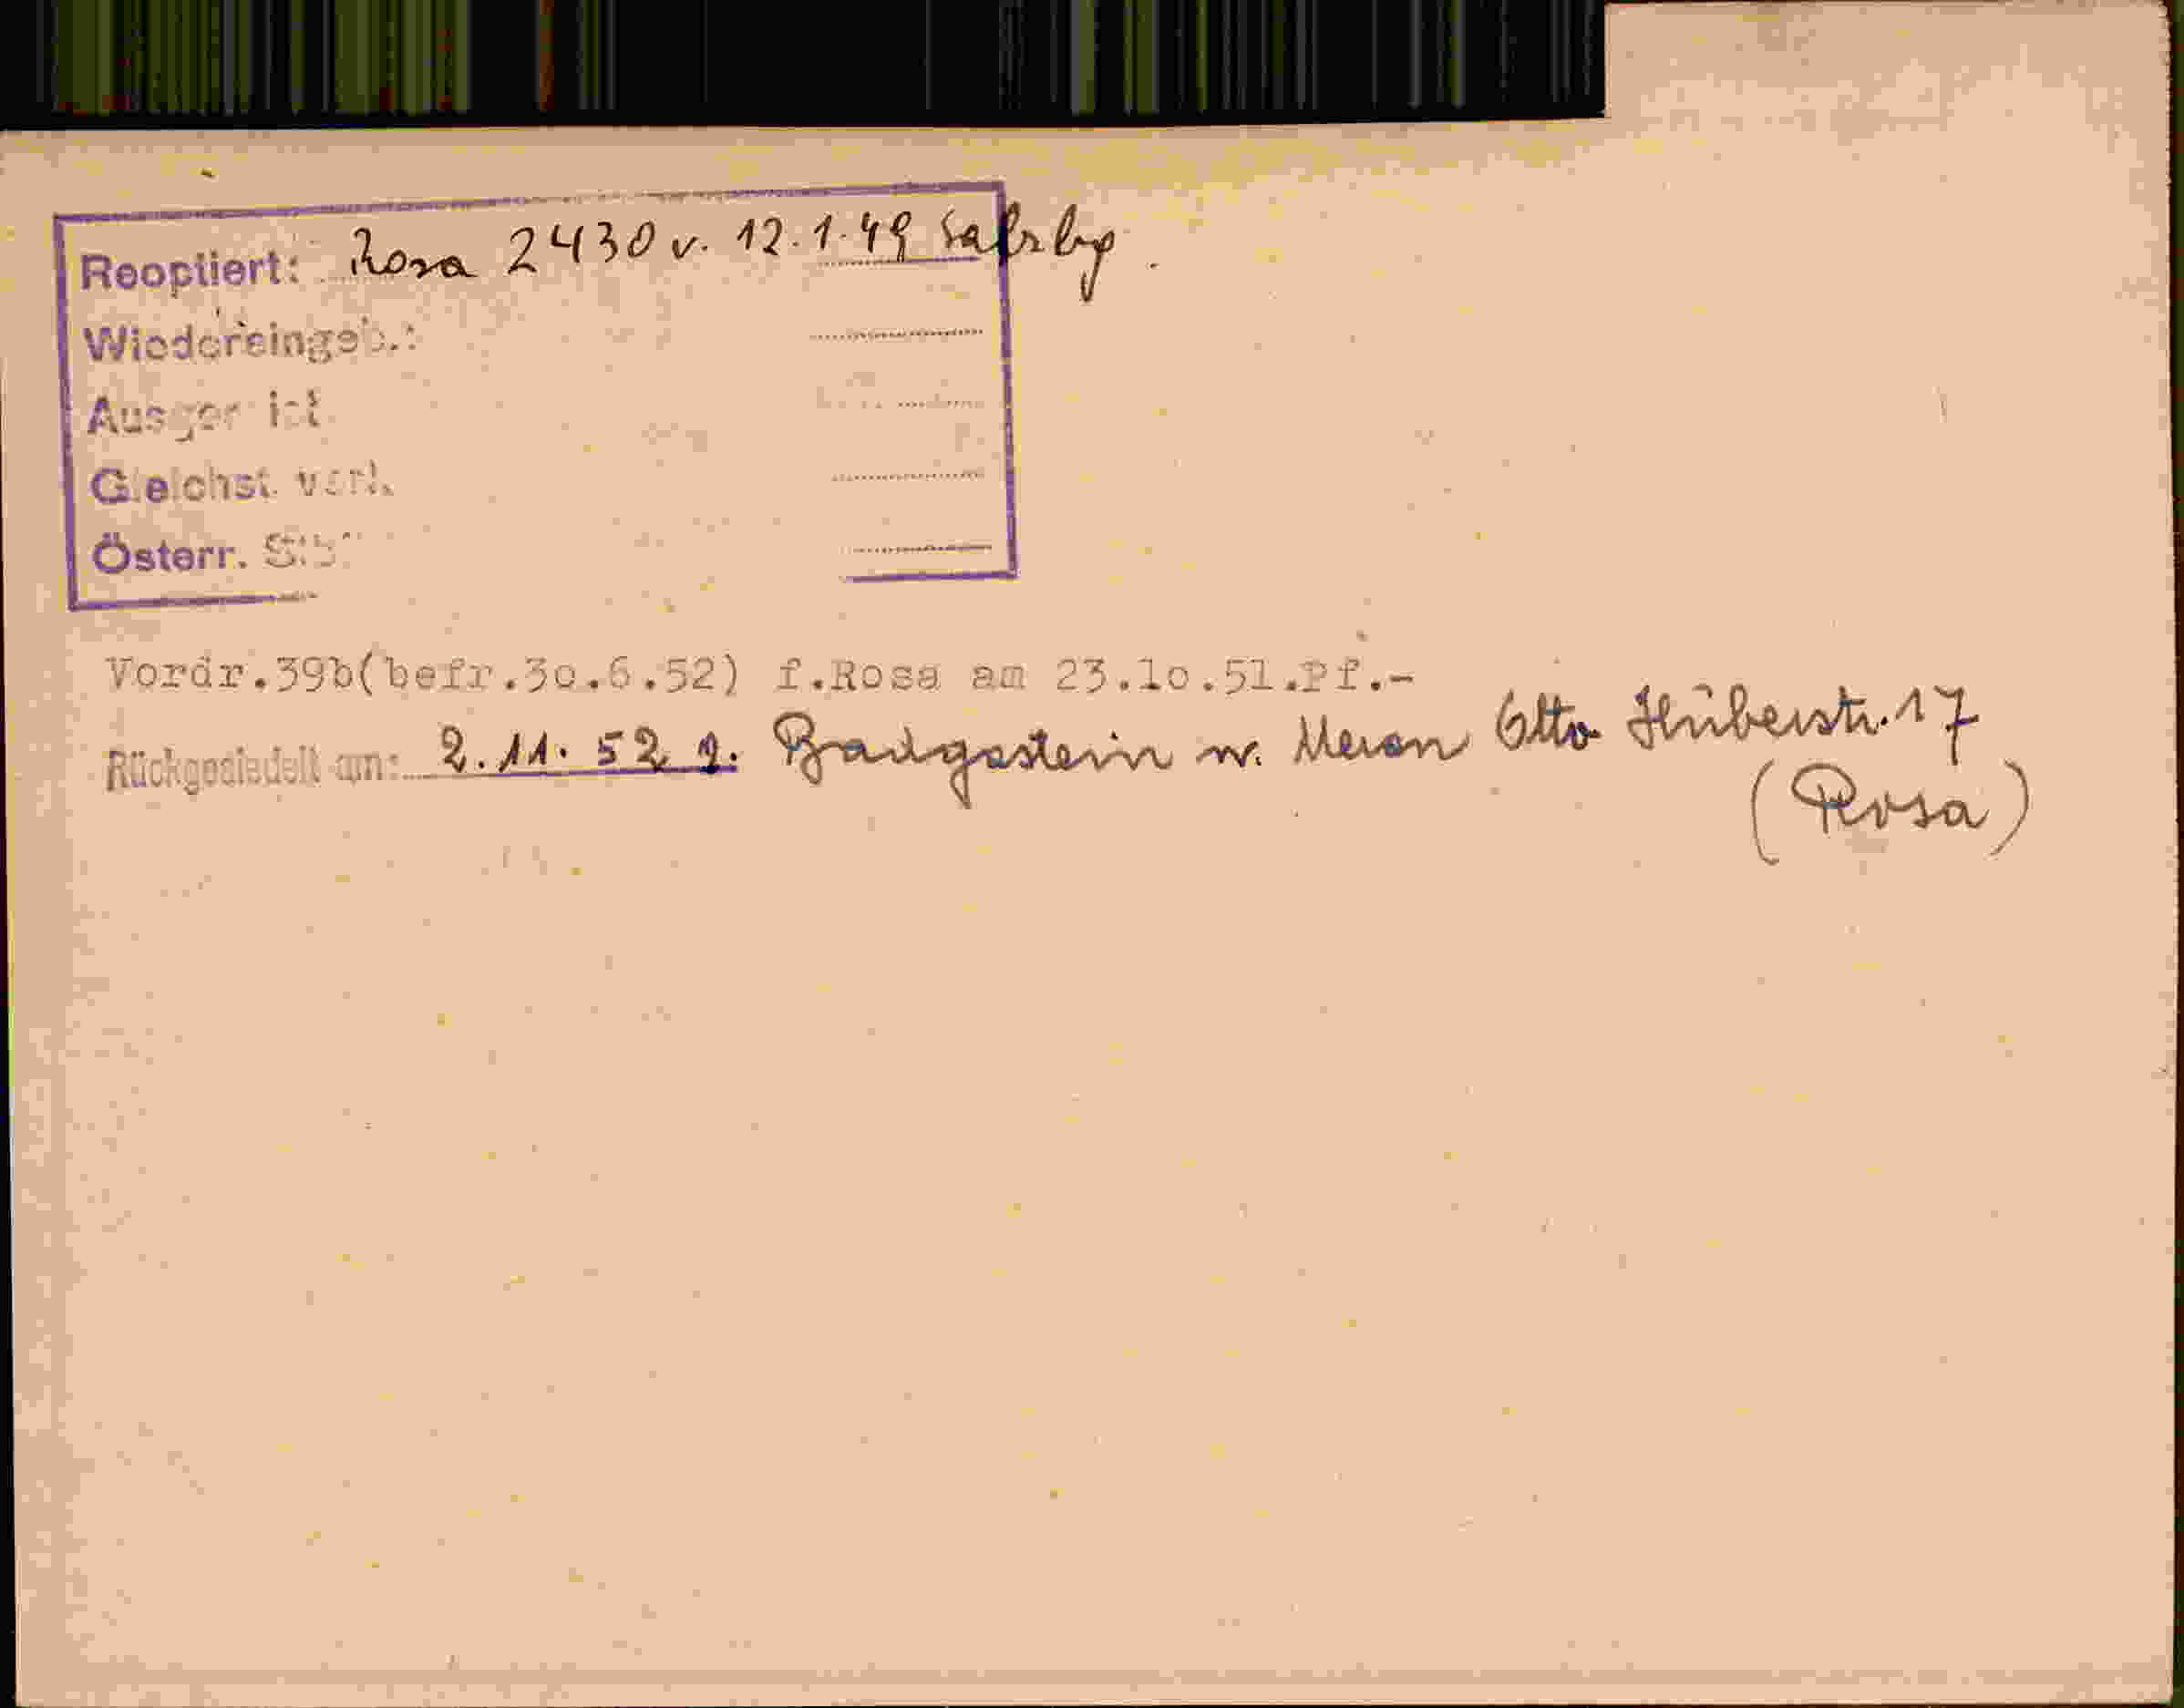 Reoptiert: Rosa 2430 v. 12.1.49 Salzbg.
Wiedereingeb.:
Gleichst. verl.
Österr.
Vordr.39b(befr.30.6.52) f.Rosa am 23.10.51.Pf.-
Rückgesiedelt am: 2.11.52 v. Badgastein n. Meran Otto Huberstr. 17
(Rosa)